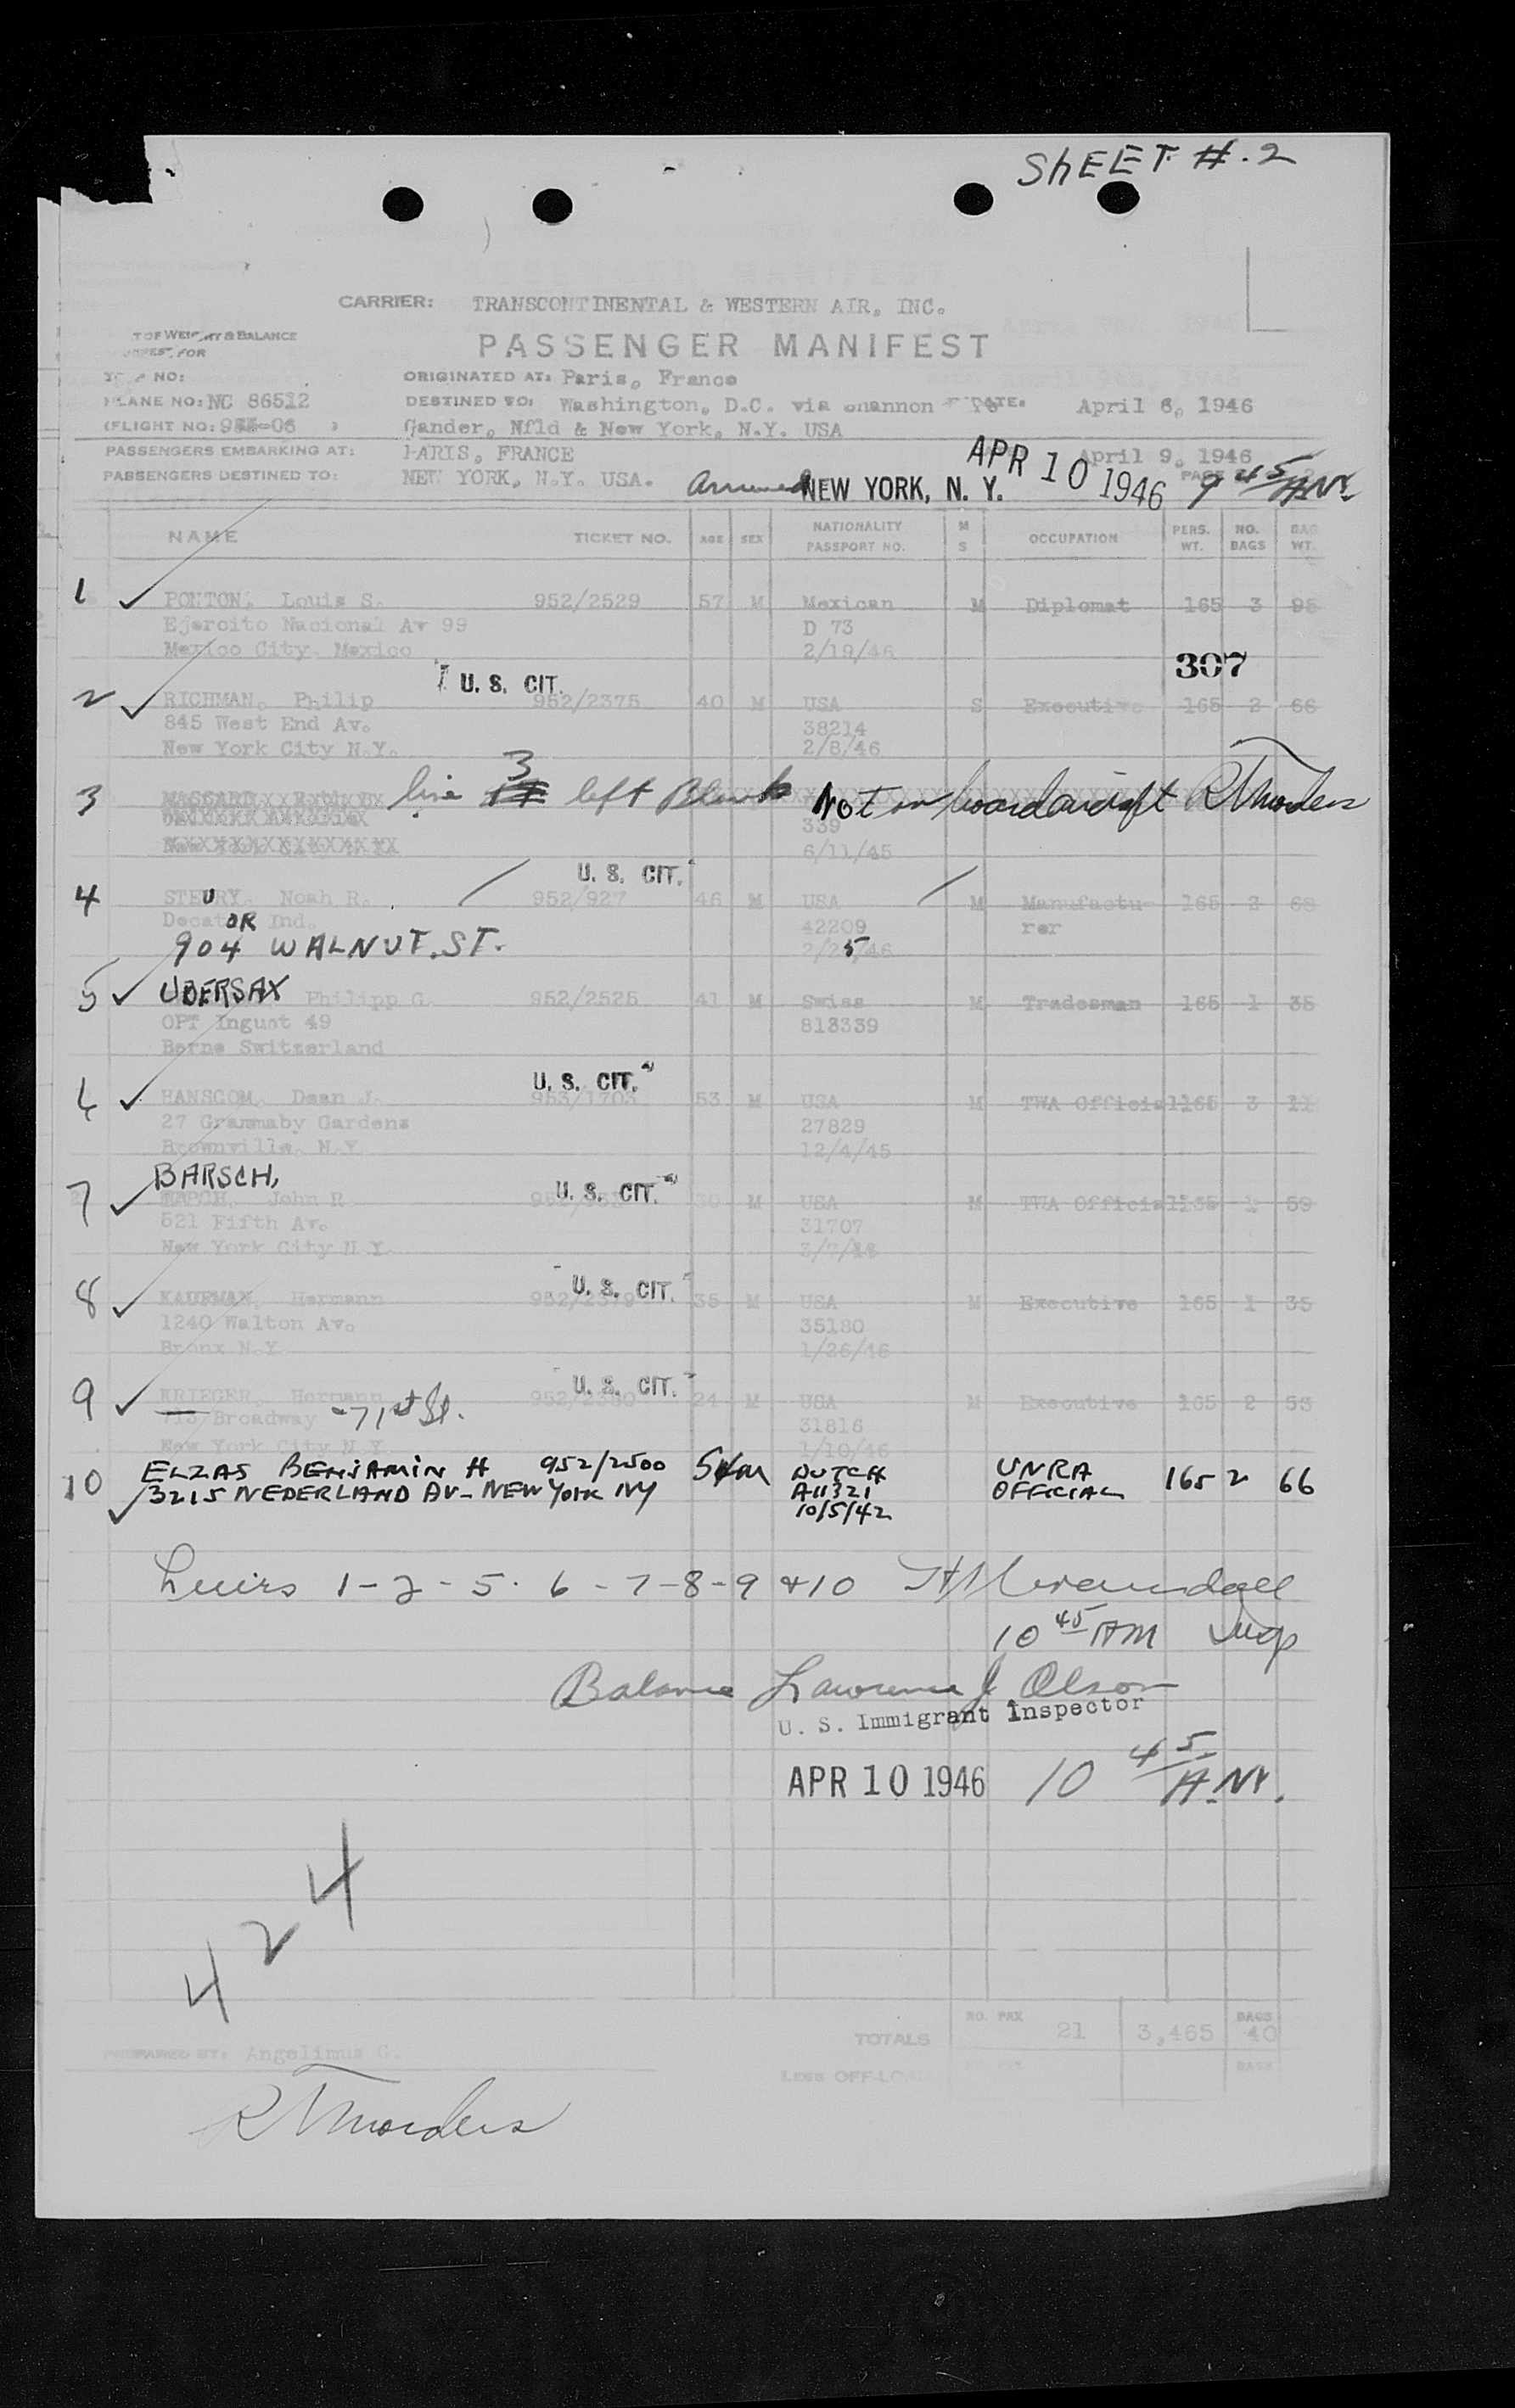 SHEET #.2
CARRIER: TRANSCONTINENTAL & WESTERN AIR, INC.
PASSENGER MANIFEST
T OF WEIGHT & BALANCE
FOR
NO:
ORIGINATED AT: Paris, France
PLANE NO: NC 86512
DESTINED TO: Washington, D.C. via Shannon
DATE: April 6, 1946
(FLIGHT NO: -06 )
Gander, Nfld & New York, N.Y. USA
PASSENGERS EMBARKING AT: PARIS, FRANCE
April 9, 1946
PASSENGERS DESTINED TO: NEW YORK, N.Y. USA.
Arrived NEW YORK, N. Y. APR 10 1946 9 45 A NY
PAGE 2
NAME TICKET NO. AGE SEX NATIONALITY PASSPORT NO. M S OCCUPATION PERS. WT. NO. BAGS BAG WT.
1 PONTON, Louis S. 952/2529 57 M Mexican M Diplomat 165 3 95
Ejercito Nacional Av 99 D 73
Mexico City, Mexico 2/19/46
307
U. S. CIT.
2 RICHMAN, Philip 952/2375 40 M USA S Executive 165 2 66
845 West End Av. 38214
New York City N.Y. 2/8/46
3 line 3 left Blank Not on board aircraft
339
6/11/45
U. S. CIT.
4 STEURY, Noah R. 952/927 46 M USA M Manufactu- 165 2 68
Decat OR Ind. 42209 rer
904 WALNUT. ST.
5 UBERSAX Philipp G. 952/2525 41 M Swiss M Tradesman 165 1 35
OPT Ingust 49 813339
Berne Switzerland
U. S. CIT.
6 HANSCOM, Dean J. 953/1703 53 M USA M TWA Official 165 3
27 Grammaby Gardens 27829
Brownville, N.Y. 12/4/45
BARSCH,
U. S. CIT.
7 John R 30 M USA M TWA Official 1 59
521 Fifth Av. 31707
New York City N.Y.
U. S. CIT.
8 KAUFMAN, Hermann 952/2379 35 M USA M Executive 165 1 35
1240 Walton Av. 35180
Bronx N.Y. 1/26/46
U. S. CIT.
9 KRIEGER, Hermann 952/2380 24 M USA M Executive 165 2 53
713 Broadway -71st St. 31816
New York City N.Y. 1/10/46
10 ELZAS BENJAMIN H 952/2500 54 M DUTCH UNRA 165 2 66
3215 NEDERLAND AV- NEW YORK NY A11321 OFFICIAL
10/5/42
1-2-5-6-7-8-9 &10
10 45 AM Insp
Balance Lawrence J Olson
U. S. Immigrant Inspector
APR 10 1946 10 45 A.NY.
424
TOTALS NO. PAX 21 3,465 BAGS 40
PREPARED BY: Angelimus G.
LESS OFF-LOAD
BAGS